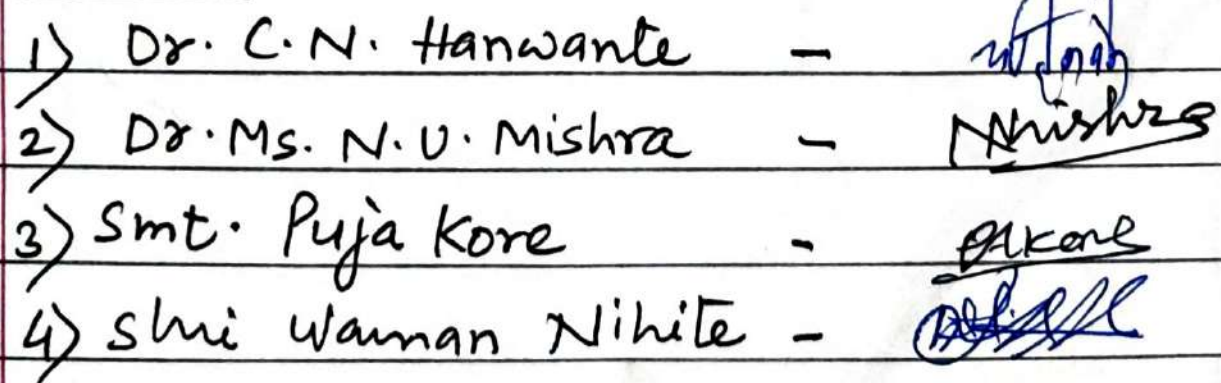 1) Dr. C.N. Hanwante -
2) Dr. Ms. N.U. Mishra - NMishra
3) Smt. Puja Kore - PKore
4) Shri Waman Nihite -